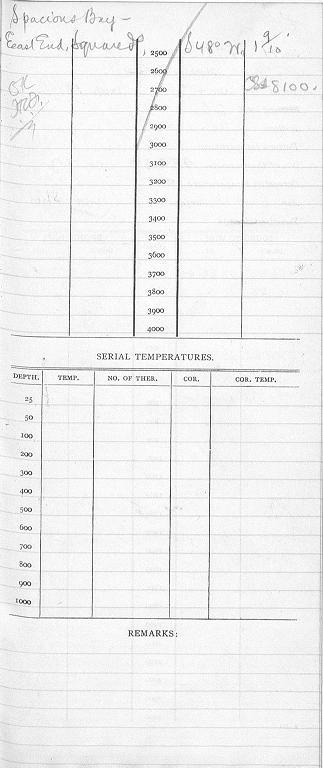 Spacious Bay –
East End, Square I, S 48° W, 1 9/10'
2500
2600
OK
8100.
2700
2800
2900
3000
3100
3200
3300
3400
3500
3600
3700
3800
3900
4000
SERIAL TEMPERATURES.
DEPTH. TEMP. NO. OF THER. COR. COR. TEMP.
25
50
100
200
300
400
500
600
700
800
900
1000
REMARKS: